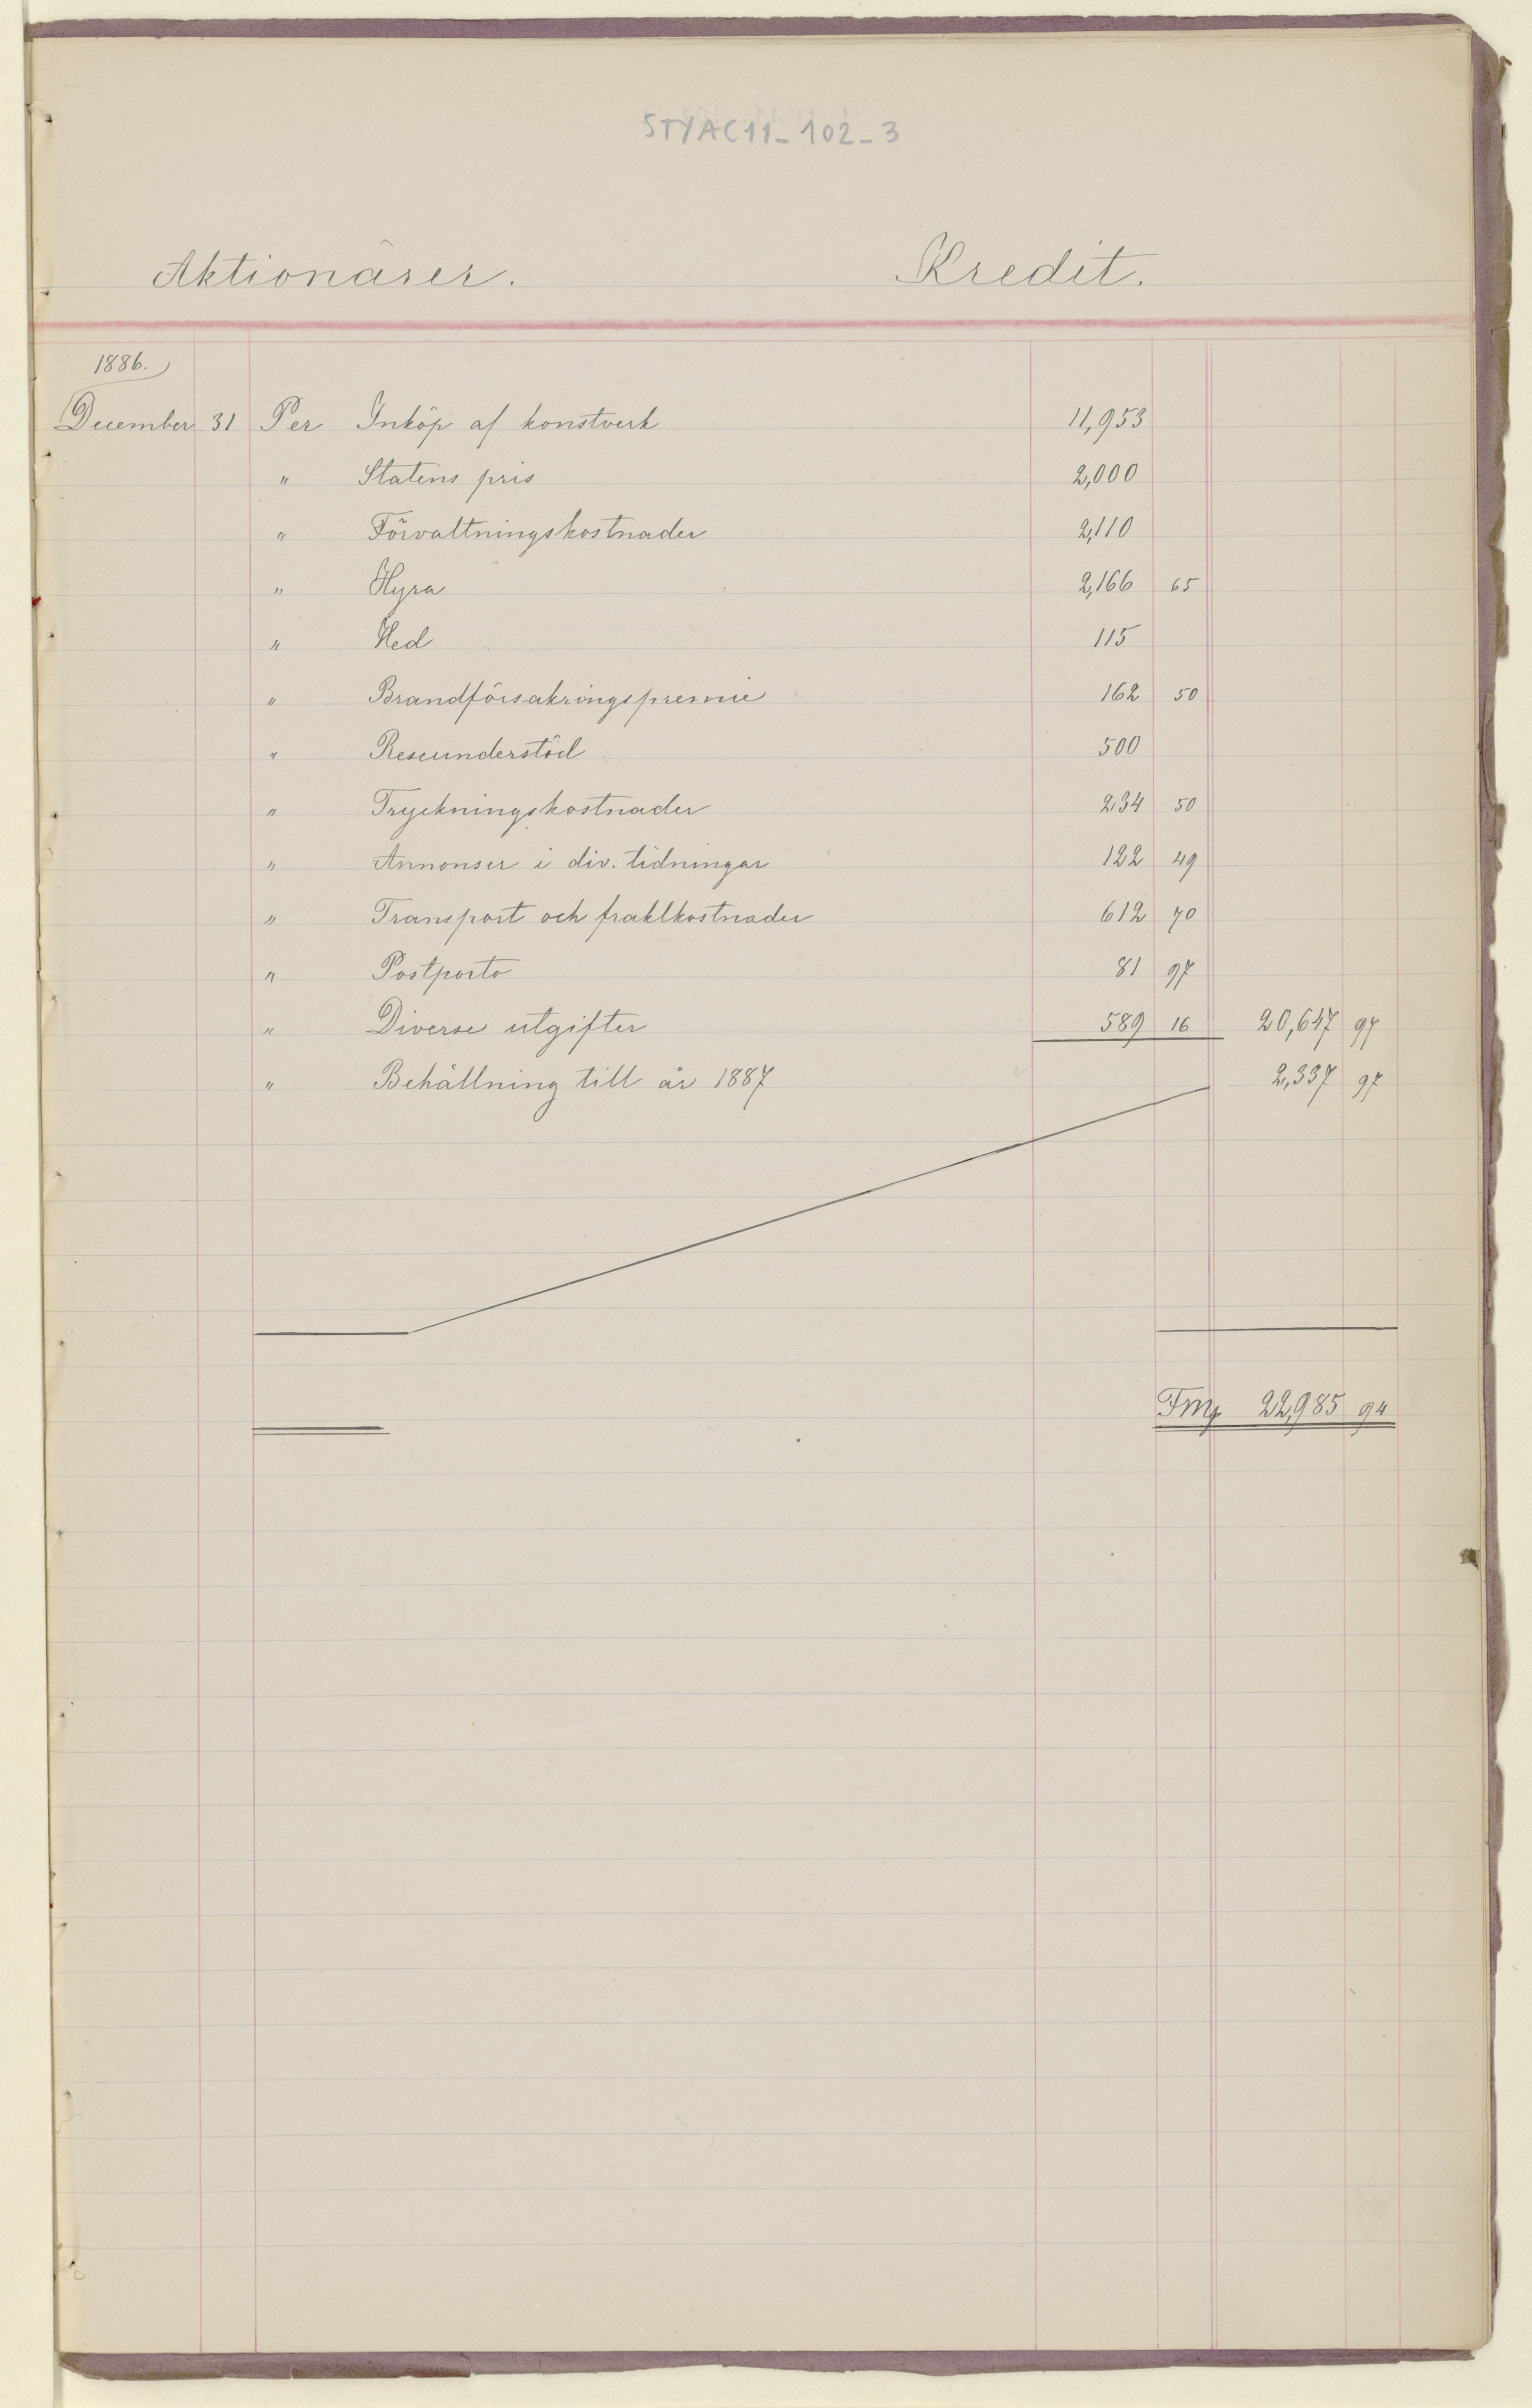 STYAC11_102_3
Aktionärer. Kredit.
1886.
December 31 Per Inköp af konstverk 11,953
" Statens pris 2,000
" Förvaltningskostnader 2,110
" Hyra 2,166 65
" Ved 115
" Brandförsäkringspremie 162 50
" Reseunderstöd 500
" Tryckningskostnader 234 50
" Annonser i div. tidningar 122 49
" Transport och fraktkostnader 612 70
" Postporto 81 97
" Diverse utgifter 589 16 20,647 97
" Behållning till år 1887 2,337 97
Fmk 22,985 94